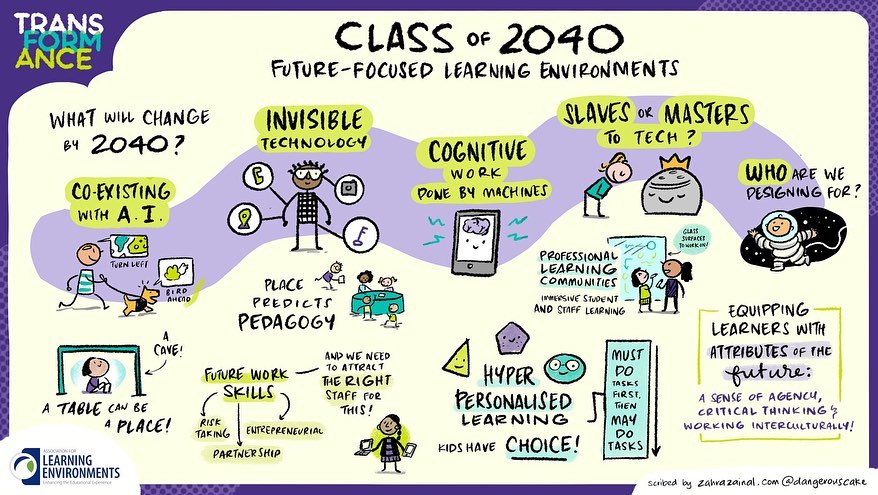 TRANS
FORM
ANCE
CLASS OF 2040
FUTURE-FOCUSED LEARNING ENVIRONMENTS
WHAT WILL CHANGE
BY 2040?
CO-EXISTING
WITH A.I.
TURN LEFT
BIRD
AHEAD
INVISIBLE
TECHNOLOGY
COGNITIVE
WORK
DONE BY MACHINES
SLAVES OR MASTERS
TO TECH?
WHO ARE WE
DESIGNING FOR?
PLACE
PREDICTS
PEDAGOGY
PROFESSIONAL
LEARNING
COMMUNITIES
IMMERSIVE STUDENT
AND STAFF LEARNING
GLASS
SURFACES
TO WORK ON!
A
CAVE!
A TABLE CAN BE
A PLACE!
FUTURE WORK
SKILLS
RISK
TAKING
ENTREPRENEURIAL
PARTNERSHIP
AND WE NEED
TO ATTRACT
THE RIGHT
STAFF FOR
THIS!
HYPER
PERSONALISED
LEARNING
KIDS HAVE CHOICE!
MUST
DO
TASKS
FIRST,
THEN
MAY
DO
TASKS
EQUIPPING
LEARNERS WITH
ATTRIBUTES OF THE
future:
A SENSE OF AGENCY,
CRITICAL THINKING &
WORKING INTERCULTURALLY!
ASSOCIATION FOR
LEARNING
ENVIRONMENTS
Enhancing the Educational Experience
scribed by zahrazainal.com @dangerouscake